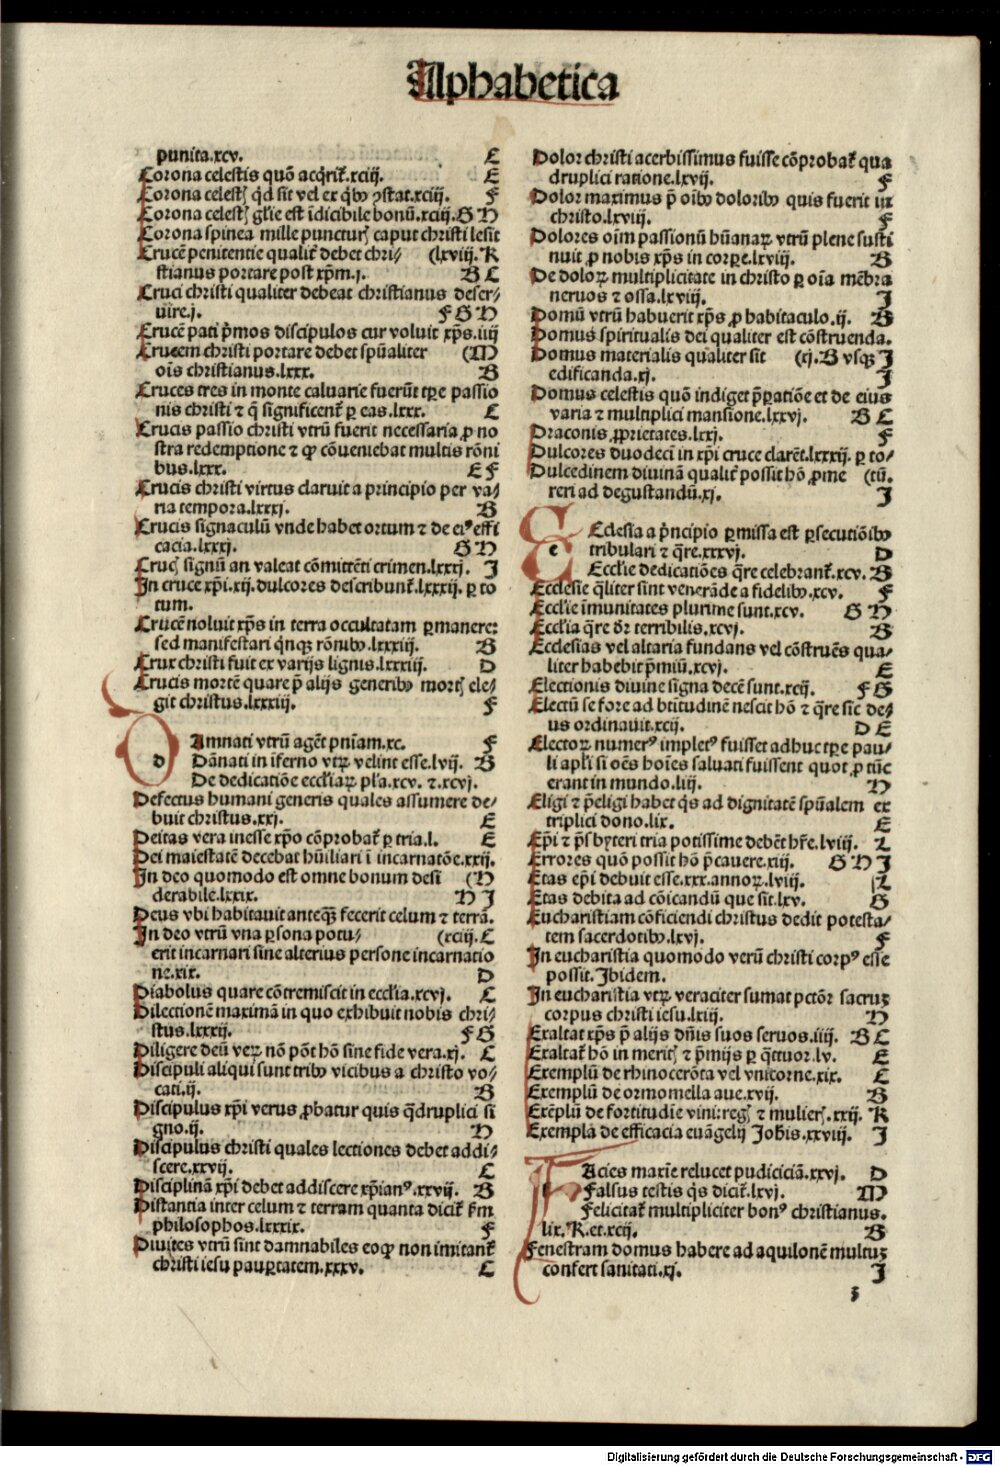 Alphabetica
punita.xcv. C
Corona celestis quō acq̄rit᷑.xciij. E
Corona celestꝭ q̄d sit vel ex q̄bꝰ ꝯstat.xciij. F
Corona celestꝭ gl'ie est īdicibile bonū.xciij.G H
Corona spinea mille puncturꝭ caput christi lesit
Crucē penitentie qualit᷑ debet chri- (lxviij.K
stianus portare post xp̄m.j. B C
Cruci christi qualiter debeat christianus deser-
uire.j. F G H
Crucē pati p̄mos discipulos cur voluit xp̄s.iiij
Crucem christi portare debet spūaliter (M
oīs christianus.lxxx. B
Cruces tres in monte caluarie fuerūt tp̄e passio
nis christi ⁊ q̄ significent᷑ ꝑ eas.lxxx. C
Crucis passio christi vtrū fuerit necessaria ꝓ no
stra redemptione ⁊ ꝙ cōueniebat multis rōni
bus.lxxx. E F
Crucis christi virtus claruit a principio per va-
ria tempora.lxxxj. B
Crucis signaculū vnde habet ortum ⁊ de eiꝰ effi
cacia.lxxxj. G H
Crucꝭ signū an valeat cōmittēti crimen.lxxxj. J
In cruce xp̄i.xij.dulcores describunt᷑.lxxxij. ꝑ to
tum.
Crucē noluit xp̄s in terra occultatam ꝑmanere:
sed manifestari q̄nqꝫ rōnibꝰ.lxxxiij. B
Crux christi fuit ex varijs lignis.lxxxiij. D
Crucis mortē quare p̄ alijs generibꝰ mortꝭ ele-
git christus.lxxxiij. F
DAmnati vtrū agēt pn̄iam.xc. F
d Dānati in īferno vtꝝ velint esse.lvij. B
De dedicatiōe eccl'iaꝝ pl'a.xcv. ⁊.xcvj.
Defectus humani generis quales assumere de-
buit christus.xxj. E
Deitas vera inesse xp̄o cōprobat᷑ ꝑ tria.l. E
Dei maiestatē decebat hūiliari ī incarnatōe.xxij.
In deo quomodo est omne bonum desi (H
derabile.lxxix. H J
Deus vbi habitauit anteqꝫ fecerit celum ⁊ terrā.
In deo vtrū vna ꝑsona potu- (xciij.C
erit incarnari sine alterius persone incarnatio
ne.xix. D
Diabolus quare cōtremiscit in eccl'ia.xcvj. C
Dilectionē maximā in quo exhibuit nobis chri-
stus.lxxxij. F G
Diligere deū veꝝ nō pōt hō sine fide vera.xj. C
Discipuli aliqui sunt tribꝰ vicibus a christo vo-
cati.ij. B
Discipulus xp̄i verus ꝓbatur quis q̄druplici si
gno.ij. H
Discipulus christi quales lectiones debet addi-
scere.xxvij. C
Disciplinā xp̄i debet addiscere xp̄ianꝰ.xxvij. B
Distantia inter celum ⁊ terram quanta dicit᷑ s̄m
philosophos.lxxxix. F
Diuites vtrū sint damnabiles eoꝙ non imitant᷑
christi iesu pauꝑtatem.xxxv. C
Dolor christi acerbissimus fuisse cōprobat᷑ qua
druplici ratione.lxvij. F
Dolor maximus p̄ oībꝰ doloribꝰ quis fuerit in
christo.lxviij. F
Dolores oīm passionū hūanaꝝ vtrū plene susti
nuit ꝓ nobis xp̄s in corꝑe.lxviij. B
De doloꝝ multiplicitate in christo ꝑ oīa mēbra
neruos ⁊ ossa.lxviij. J
Domū vtrū habuerit xp̄s ꝓ habitaculo.ij. B
Domus spiritualis dei qualiter est cōstruenda.
Domus materialis qualiter sit (xj.B vsqꝫ J
edificanda.xj. J
Domus celestis quō indiget p̄ꝑatiōe et de eius
varia ⁊ multiplici mansione.lxxvj. B C
Draconis ꝓprietates.lxxj. F
Dulcores duodeci in xp̄i cruce clarēt.lxxxij. ꝑ to-
Dulcedinem diuinā qualit᷑ possit hō ꝓme (tū.
reri ad degustandū.xj. J
EEclesia a p̄ncipio ꝑmissa est ꝑsecutiōibꝰ
e tribulari ⁊ q̄re.xxxvj. D
Eccl'ie dedicatiōes q̄re celebrant᷑.xcv. B
Ecclesie q̄liter sint venerāde a fidelibꝰ.xcv. F
Eccl'ie īmunitates plurime sunt.xcv. G H
Eccl'ia q̄re dr̄ terribilis.xcvj. B
Ecclesias vel altaria fundans vel cōstruēs qua-
liter habebit p̄miū.xcvj. E
Electionis diuine signa decē sunt.xcij. F G
Electū se fore ad btitudinē nescit hō ⁊ q̄re sic de-
us ordinauit.xcij. D E
Electoꝝ numerꝰ impletꝰ fuisset adhuc tp̄e pau-
li apl'i si oēs hoīes saluati fuissent quot ꝓ tūc
erant in mundo.liij. H
Eligi ⁊ p̄eligi habet q̄s ad dignitatē spūalem ex
triplici dono.lix. E
Ep̄i ⁊ p̄sbyteri tria potissime debēt hr̄e.lviij. L
Errores quō possit hō p̄cauere.xiij. G H J
Etas ep̄i debuit esse.xxx.annoꝝ.lviij. L
Etas debita ad cōicandū que sit.lxv. G
Eucharistiam cōficiendi christus dedit potesta-
tem sacerdotibꝰ.lxvj. F
In eucharistia quomodo verū christi corpꝰ esse
possit. Ibidem.
In eucharistia vtꝝ veraciter sumat pctōr sacruꝫ
corpus christi iesu.lxiij. H
Exaltat xp̄s p̄ alijs dn̄is suos seruos.iiij. B C
Exaltat᷑ hō in meritꝭ ⁊ p̄mijs ꝑ q̄ttuor.lv. E
Exemplū de rhinocerōta vel vnicorne.xix. C
Exemplū de ormomella aue.xvij. B
Exēplū de fortitudīe vini:regꝭ ⁊ mulierꝭ.xxij. K
Exempla de efficacia euāgelij Joh̄is.xxviij. J
FAcies marie relucet pudiciciā.xxvj. D
f Falsus testis q̄s dicit᷑.lxvj. M
Felicitat᷑ multipliciter bonꝰ christianus.
lix. K.et.xcij. B
Fenestram domus habere ad aquilonē multuꝫ
confert sanitati.xj. J
3
Digitalisierung gefördert durch die Deutsche Forschungsgemeinschaft - DFG